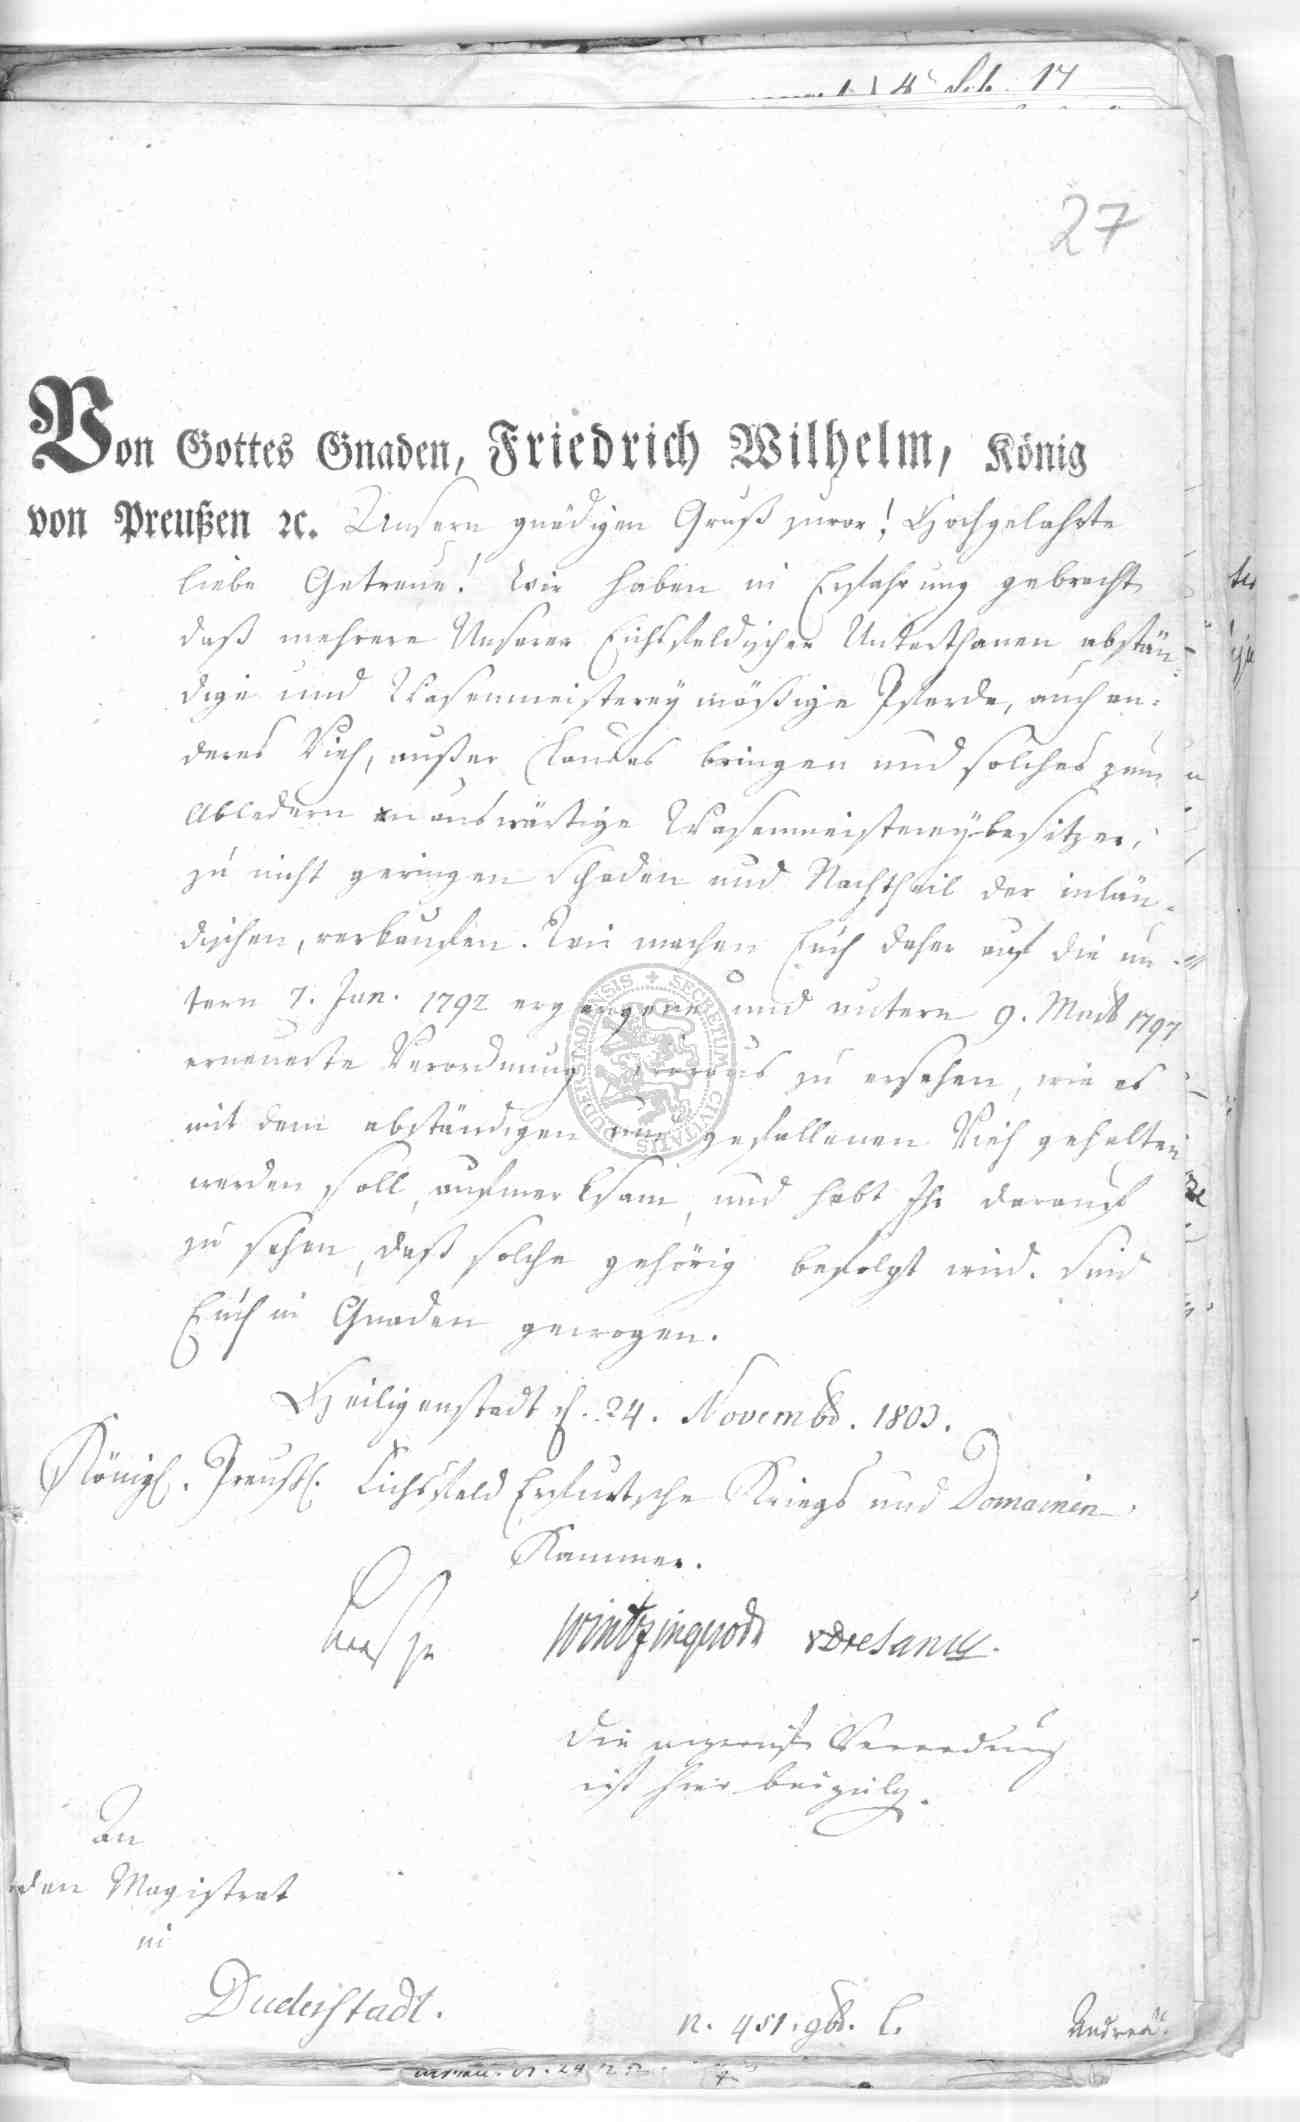 27
Von Gottes Gnaden, Friedrich Wilhelm, König
von Preußen ꝛc. Unsern gnädigen Gruß zuvor! Hochgelahrte
liebe Getreue! Wir haben in Erfahrung gebracht
daß mehrere Unserer Eichsfeldischen Unterthanen abstän-
dige und Wasenmeisterey mäßige Pferde, auch an-
deres Vieh, außer Landes bringen und solches zum
Abledern an auswärtige Wasenmeistereybesitzer,
zu nicht geringen Schaden und Nachtheil der inlän-
dischen, verkaufen. Wir machen Euch daher auf die un-
term 7. Jan. 1792 ergangene und unterm 9. 1797
erneuerte Verordnung woraus zu ersehen, wie es
mit dem abständigen und gefallenen Vieh gehalten
werden soll, aufmerksam, und habt Ihr darauf
zu sehen, daß solche gehörig befolgt wird. Sind
Euch in Gnaden gewogen.
Heiligenstadt d. 24. Novembr. 1803.
Königl. Preußl. Eichsfeld Erfurtsche Kriegs und Domainen-
Kammer.
Wintzingerode vDresanky.
Die Verordnung
ist hier
An
den Magistrat
in
Duderstadt.
n. 451. 9br. C.
Andreä
SECRETUM CIVITATIS DUDERSTADIENSIS